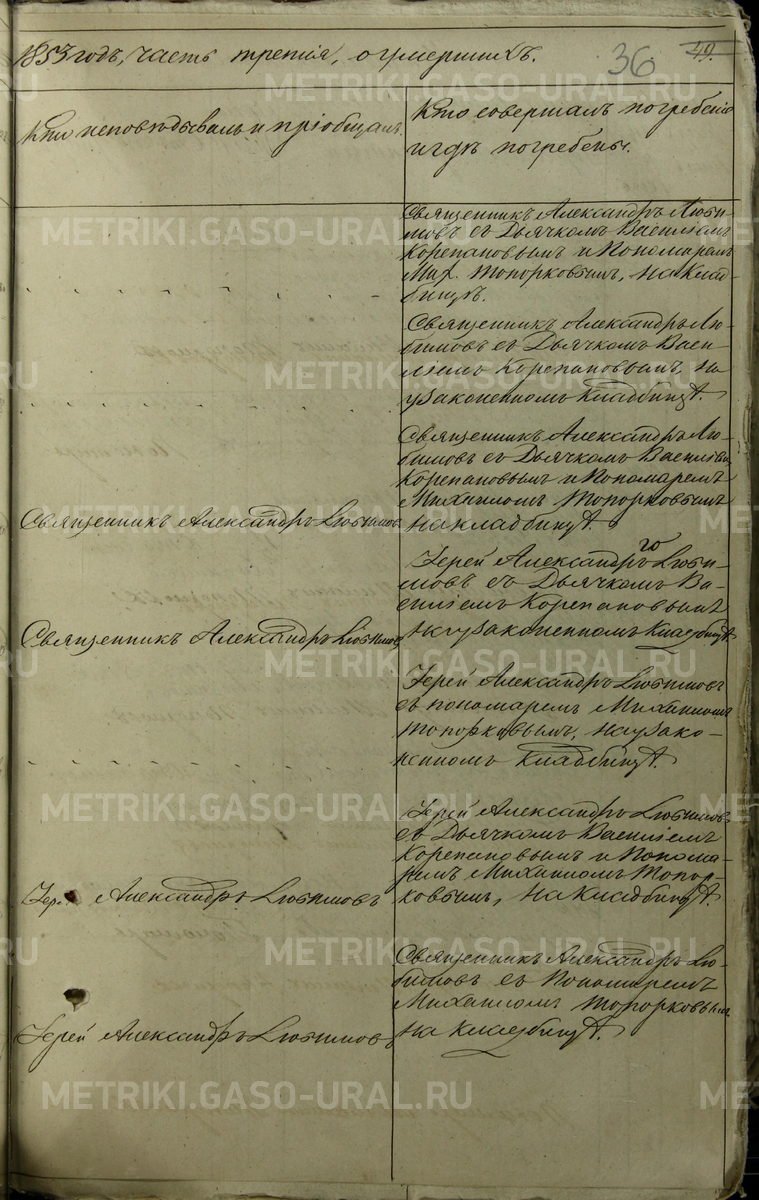 1853 годъ, часть третія, о умершихъ.
36 49.
Кто исповѣдывалъ и пріобщалъ.
Кто совершалъ погребеніе
и гдѣ погребены.
Священникъ Александръ Люби-
мовъ съ Дьячкомъ Василіемъ
Корепановымъ и Пономаремъ
Мих. Топорковымъ, на клад-
бищѣ.
Священникъ Александръ Лю-
бимовъ съ Дьячкомъ Васи-
ліемъ Корепановымъ, на
узаконенномъ кладбищѣ.
Священникъ Александръ Лю-
бимовъ съ Дьячкомъ Василіем
Корепановымъ и Пономаремъ
Михаиломъ Топорковымъ
на кладбищѣ.
Священникъ Александръ Любимовъ
Іерей Александръ Люби-
мовъ съ Дьячкомъ Ва-
силіемъ Корепановымъ
на узаконенномъ кладбищѣ
Священникъ Александръ Любимовъ
Іерей Александръ Любимовъ
съ пономаремъ Михаиломъ
Топорковымъ, на узако-
ненномъ кладбищѣ.
Іерей Александръ Любимовъ
съ Дьячкомъ Василіемъ
Корепановымъ и Понома-
ремъ Михаиломъ Топор-
ковымъ, на кладбищѣ
Іерей Александръ Любимовъ
Священникъ Александръ Лю-
бимовъ съ Пономаремъ
Михаиломъ Топорковымъ
на кладбищѣ.
Іерей Александръ Любимовъ
METRIKI.GASO-URAL.RU